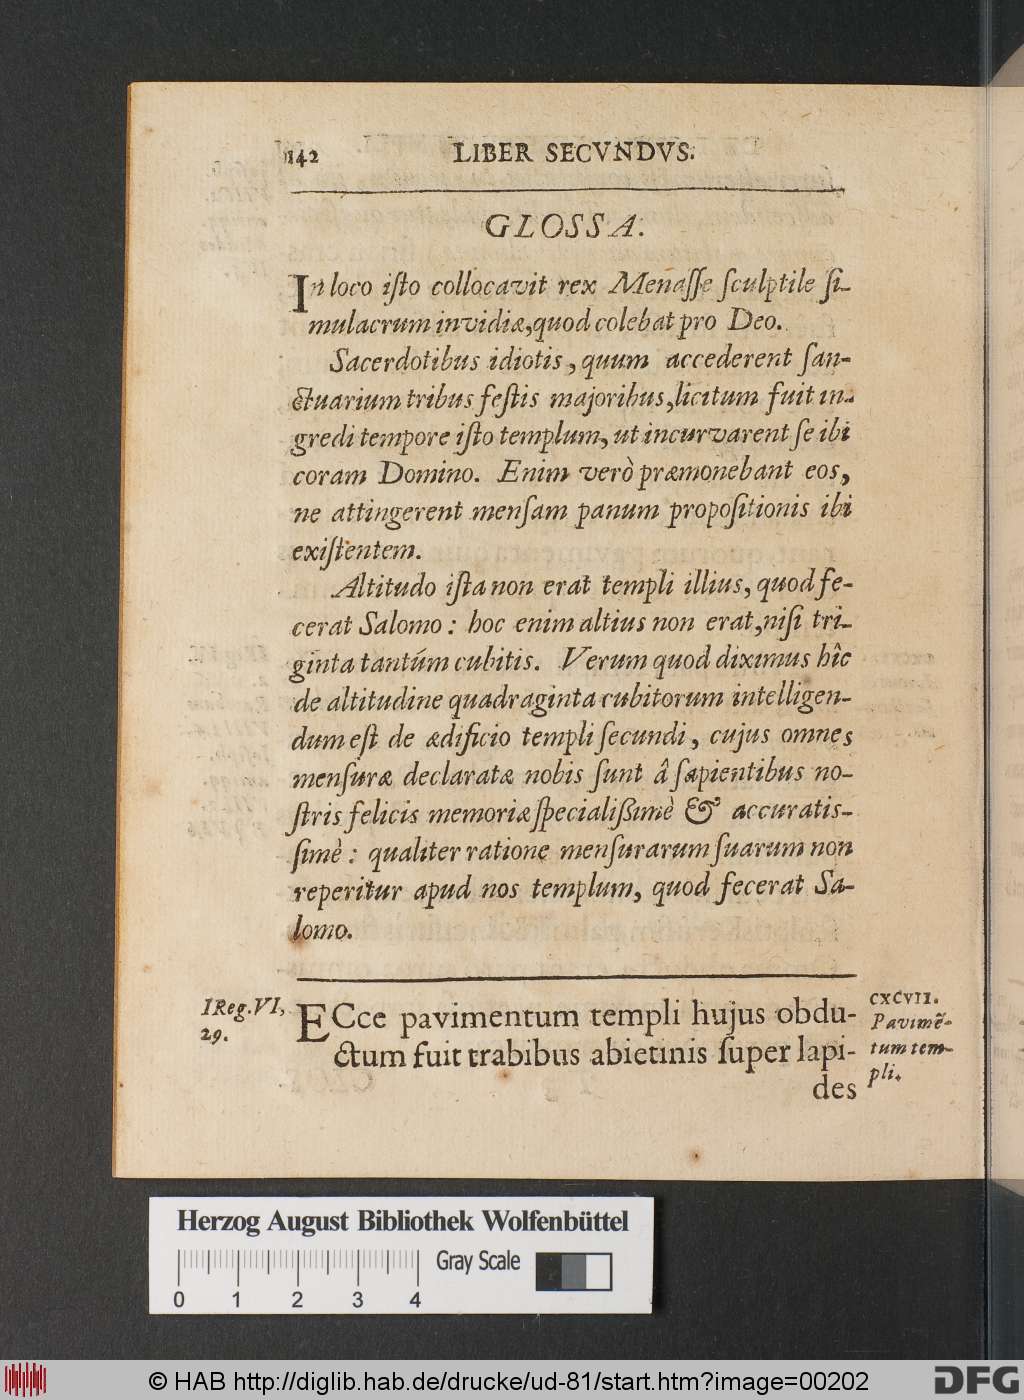 142 LIBER SECVNDVS.
GLOSSA.
In loco iſto collocavit rex Menaſſe ſculptile ſi-
mulacrum invidiæ, quod colebat pro Deo.
Sacerdotibus idiotis, quum accederent ſan-
ctuarium tribus feſtis majoribus, licitum fuit in-
gredi tempore iſto templum, ut incurvarent ſe ibi
coram Domino. Enim verò præmonebant eos,
ne attingerent menſam panum propoſitionis ibi
exiſtentem.
Altitudo iſta non erat templi illius, quod fe-
cerat Salomo: hoc enim altius non erat, niſi tri-
ginta tantúm cubitis. Verum quod diximus hîc
de altitudine quadraginta cubitorum intelligen-
dum eſt de ædificio templi ſecundi, cujus omnes
menſuræ declaratæ nobis ſunt â ſapientibus no-
ſtris felicis memoriæ ſpecialißimè & accuratis-
ſimè: qualiter ratione menſurarum ſuarum non
reperitur apud nos templum, quod fecerat Sa-
lomo.
I Reg. VI,
29.
ECce pavimentum templi hujus obdu-
ctum fuit trabibus abietinis ſuper lapi-
des
CXCVII.
Pavimẽ-
tum tem-
pli.
Herzog August Bibliothek Wolfenbüttel
Gray Scale
0 1 2 3 4
© HAB http://diglib.hab.de/drucke/ud-81/start.htm?image=00202
DFG